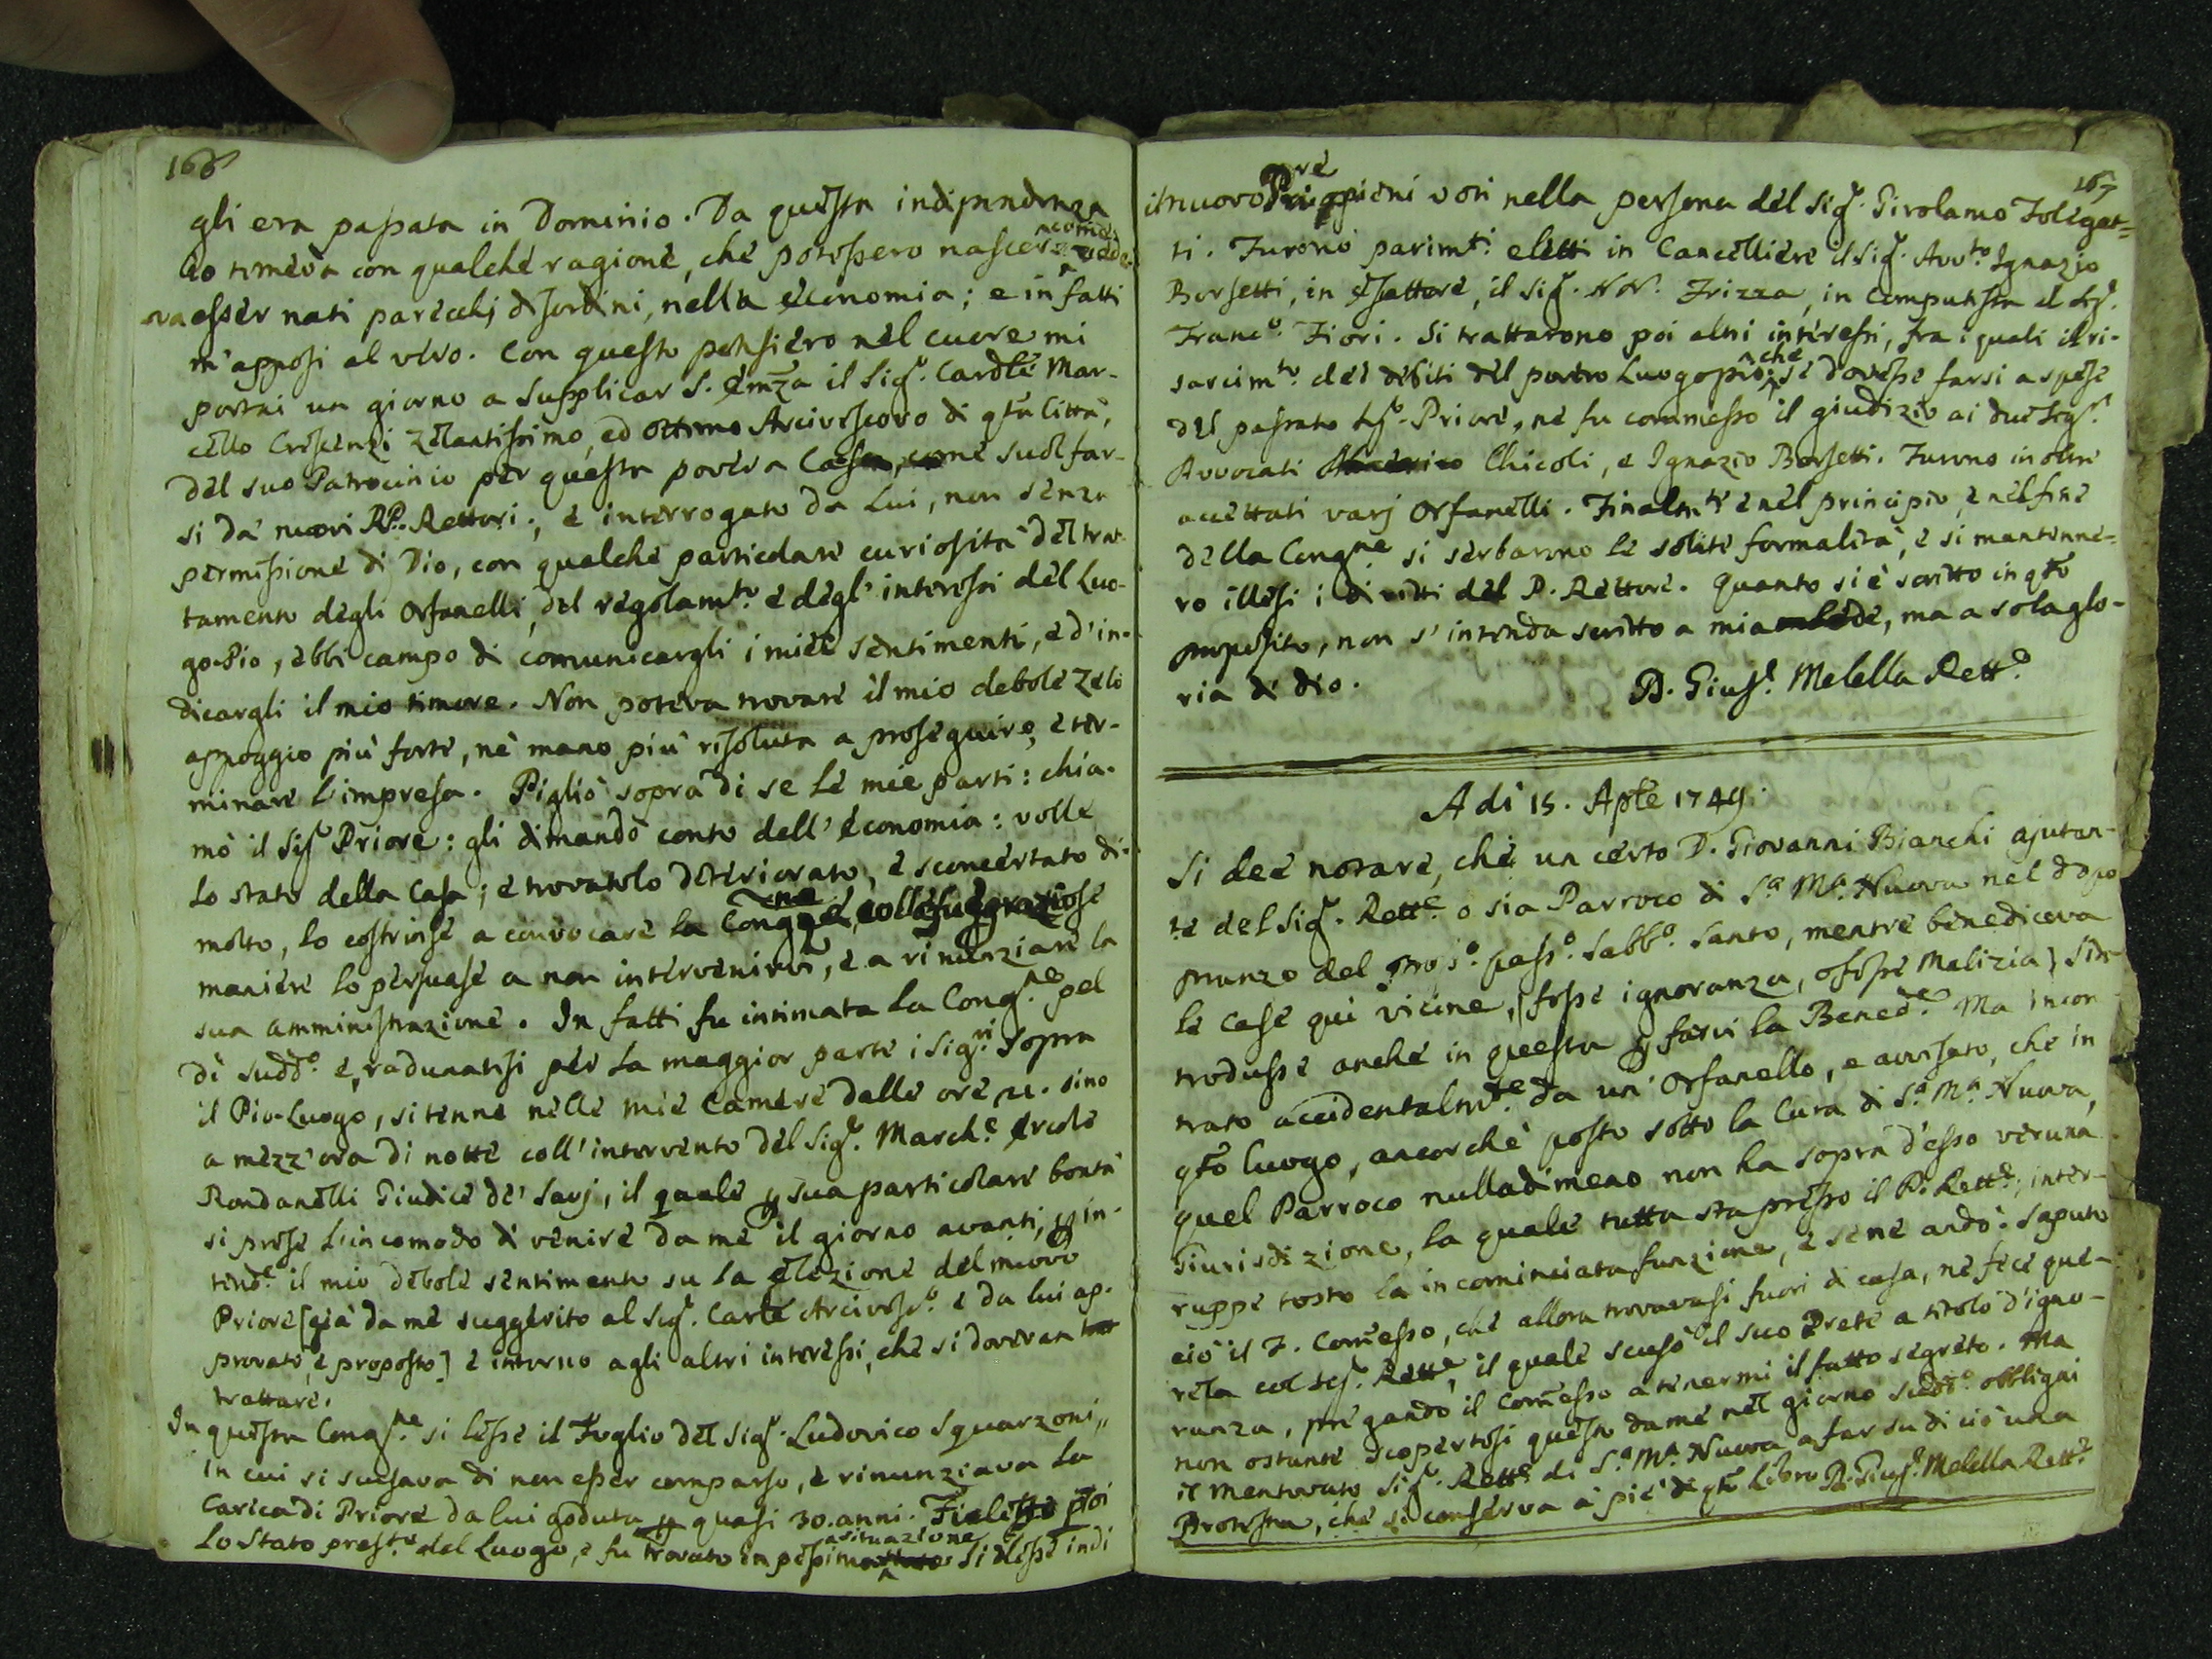 166
gli era passata in Dominio. Da questa indipendenza
Io temeva con qualche ragione, che potessero nascere come vede-
va esser nati parecchj disordini, nella economia; e in fatti
m'apposi al vero. Con questo pensiero nel cuore mi
portai un giorno a supplicar S. Emza il Sigr. Cardle Mar-
cello Crescenzi zelantissimo, ed ottimo Arcivescovo di qta Città,
del suo Patrocinio per questa povera Casa, come suol far-
si da nuovi RP. Rettori; e interrogato da Lui, non senza
permissione di Dio, con qualche particolare curiosità del trat-
tamento degli Orfanelli, del regolamto. e degl'interessi del Luo-
go-Pio, ebbi campo di comunicargli i miei sentimenti, e d'in-
dicargli il mio timore. Non poteva trovare il mio debole zelo
appoggio più forte, nè mano più risoluta a proseguire, e ter-
minare l'impresa. Pigliò sopra di se le mie parti: chia-
mò il Sigr Priore: gli dimandò conto dell'economia: volle
lo stato della Casa; e trovatolo deteriorato, e sconcertato di-
molto, lo costrinse a convocare la Congne, e colle sue graziose
maniere lo persuase a non intervenirvi, e a rinunziare la
sua amministrazione. In fatti fu intimata la Congne. pel
dì sudd.o e, radunatisi per la maggior parte i Sigri sopra
il Pio-Luogo, si tenne nelle mie Camere dalle ore 21. sino
a mezz'ora di notte coll'intervento del Sigr. March.e Ercole
Rondanelli Giudice de' Savj, il quale p sua particolare bontà
si prese l'incomodo di venire da me il giorno avanti, p in-
tende il mio debole sentimento su la elezione del nuovo
Priore [già da me suggerito al Sigr. Carle Arcivesc.o e da lui ap-
provato, e proposto] e intorno agli altri interessi, che si dovevan
trattare.
In questa Congne. si lesse il Foglio del Sigr. Ludovico Squarzoni,,
in cui si scusava di non esser comparso, e rinunziava la
Carica di Priore da lui goduta p quasi 30. anni. Fu letto poi
lo Stato preste. del Luogo, e fu trovato in pessima situazione. Si elesse indi
167
il nuovo Priore a pieni voti nella persona del Sigr. Girolamo Folegat=
ti. Furono parimti. eletti in Cancelliere il Sigr. Avvto. Ignazio
Borsetti, in Esattore, il Sigr. NN. Frizza, in Computista il Sigr.
Franc.o Fiori. Si trattarono poi altri interessi, fra i quali il ri-
sarcimto. dei debiti del povero Luogo pio; che se dovesse farsi a spese
del passato Sigr. Priore, ne fu commesso il giudizio ai due Sigri
Avvocati Chicoli, e Ignazio Borsetti. Furono in oltre
accettati varj Orfanelli. Finalmte e nel principio, e nel fine
della Congne si serbarono le solite formalità, e si mantenne=
ro illesi i diritti del P. Rettore. Quanto si è scritto in qto
proposito, non s'intenda scritto a mia lode, ma a sola glo-
ria di Dio.
D. Gius.e Melella Rett.e
A dì 15. Aple 1749.
Si dee notare, che un certo D. Giovanni Bianchi ajutan-
te del Sigr. Rette. o sia Parroco di S.a M.a Nuova nel dopo
pranzo del pross.o pass.o Sabb.o Santo, mentre benediceva
le case qui vicine, [fosse ignoranza, o fosse malizia] s'in-
trodusse anche in questa p farvi la Bened.e Ma incon-
trato accidentalmte. da un' Orfanello, e avvisato, che in
qto luogo, ancorchè posto sotto la Cura di S.a M.a Nuova,
quel Parroco nulladimeno non ha sopra d'esso veruna
Giurisdizione, la quale tutta sta presso il P. Rette. inter-
ruppe tosto la incominciata funzione, e se ne andò. Saputo
ciò il F. Comesso, che allora trovavasi fuori di casa, ne fece que-
rela col Sigr. Rette, il quale scusò il suo Prete a titolo d'igno-
ranza, pregando il Comesso a tenermi il fatto segreto. Ma
non ostante scopertosi questo da me nel giorno sudd.o obbligai
il mentovato Sigr. Rette. di S.a M.a Nuova a far su di ciò una
Protesta, che si conserva a piè di qto Libro D. Gius.e Melella Rett.e